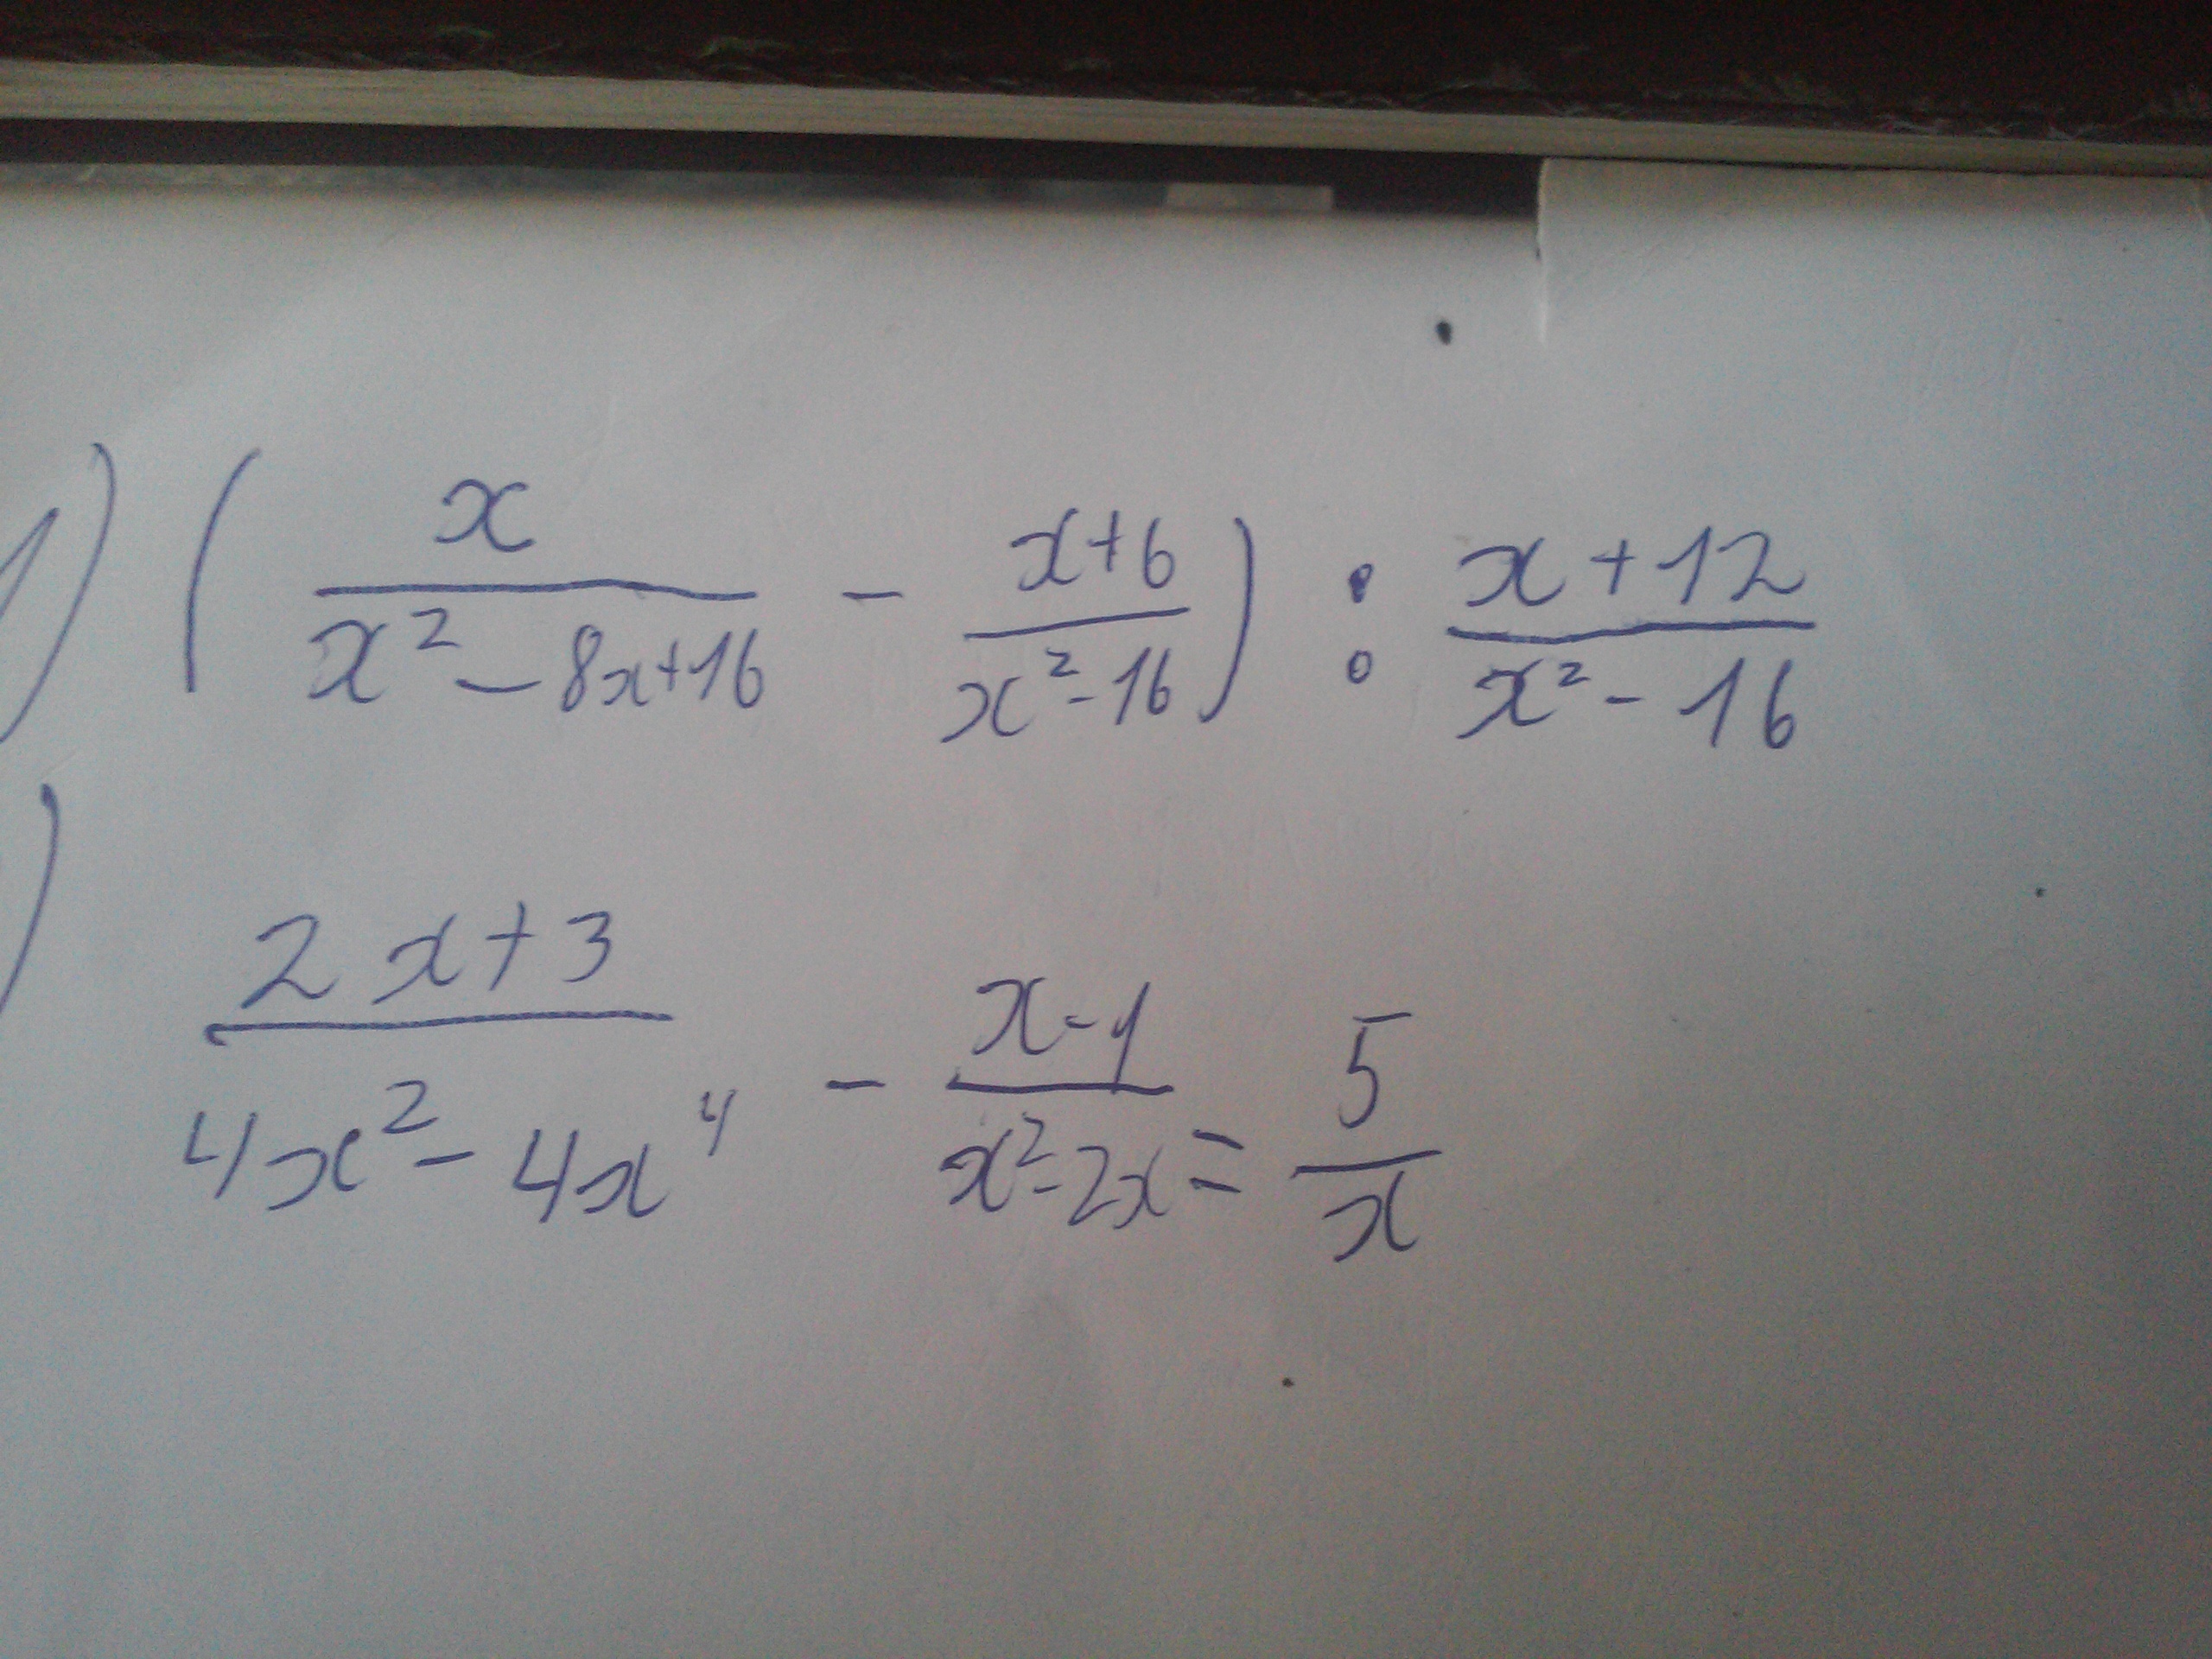 1) (x/(x² - 8x+16) - (x+6)/(x²-16)) : (x+12)/(x²-16)
) (2x+3)/(4x²-4x⁴) - (x-1)/(x²-2x) = 5/x